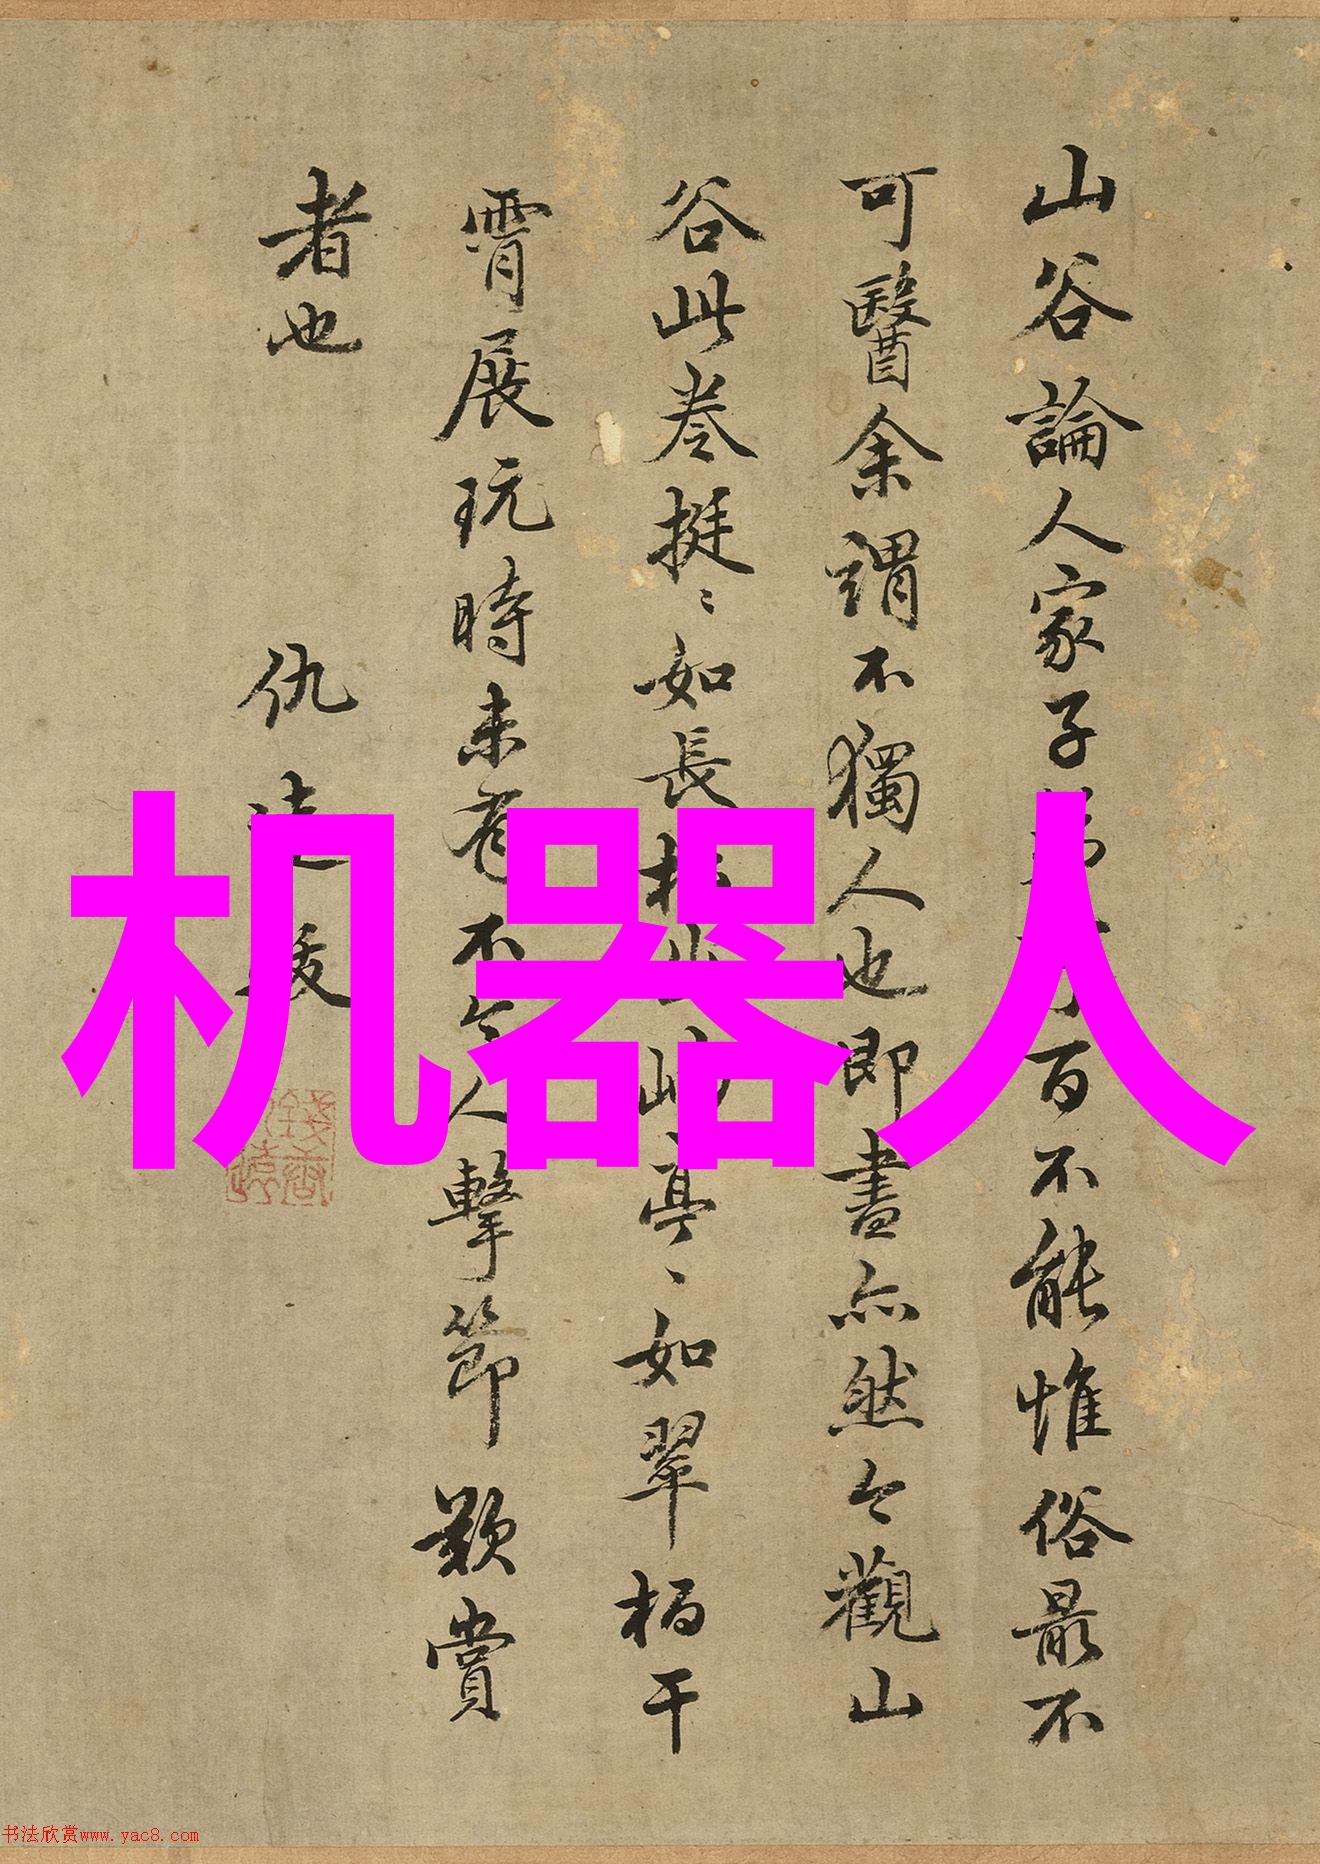 山谷論人家子弟百不能惟俗最不
可醫余謂不獨人也即書亦然今觀山
谷此卷挺〻如長亭〻如翠柏干
霄展玩時未有不令人擊節歎賞
者也
仇遠跋
机器人
书法欣赏www.yac8.com